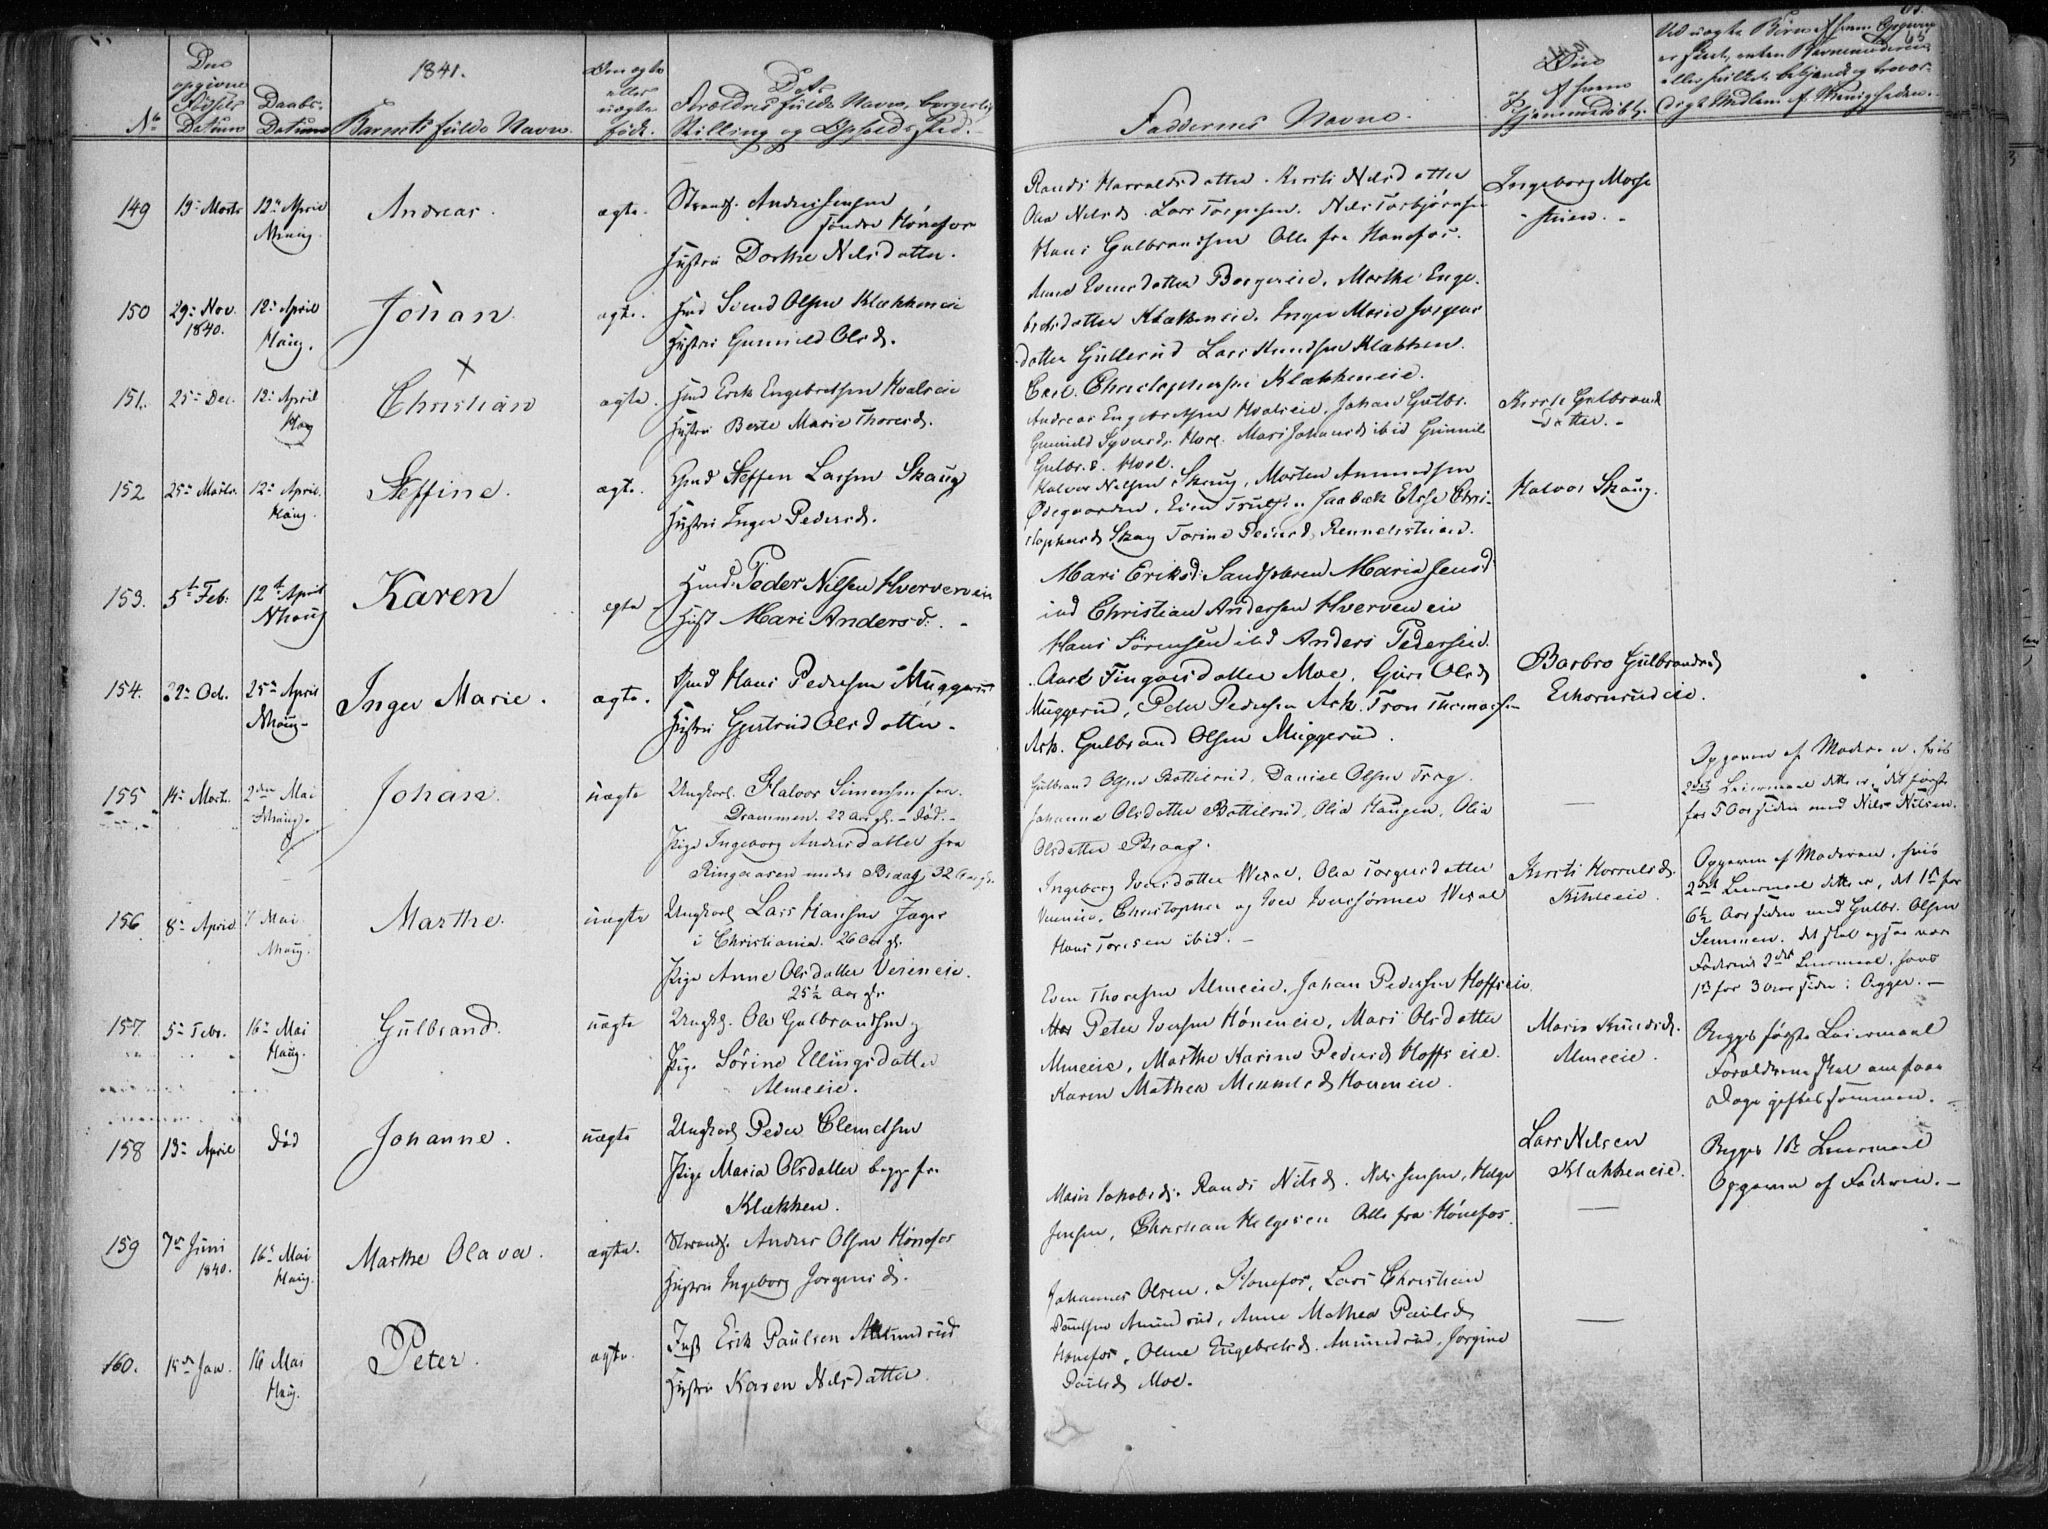 1841.
No
Den opgivne Fødsels Datum
Daabs Datum
Barnets fulde Navn.
Om ægte eller uægte født.
Forældres fulde Navn, borgerlig Stilling og Opholdssted.
Faddernes Navne.
149
19de Marts
12te April
Nhaug.
Andreas.
ægte.
Strands. Anders Jensen
søndre Hønefos
Hustru Dorthe Nilsdatter.
Randi Harraldsdatter. Kirsti Nilsdatter
Olea Nilsd. Lars Torgersen. Nils Torbjørnsen
Hans Gulbrandsen Alle fra Hønefos.
Ingeborg Morse
150
29. Nov.
1840.
12. April
Haug.
Johan
ægte.
Hmd Svend Olsen Klækkeneie
Hustru Gunnild Olsd.
Anne Iversdatter Borgereie, Marthe Enge-
bretsdatter Klækkeneie, Inger Marie Jørgens-
datter Gullerud Lars Knudsen Klækken.
Carl Christophersen Klækkeneie.
151.
25. Dec.
12. April
Haug
Christian
ægte.
Hmd Erik Engebretsen Hvalseie
Hustru Berte Marie Thoresd.
Andreas Engebretsen Hvalseie, Johan Gulbr.
Gunnild Syversd. Hval. Mari Johansd ibid Gunnil
Gulbr.d. Hval.
Kirsti Gulbrands
datter.
152
25. Marts.
12. April.
Haug.
Steffine.
ægte.
Gmd Steffen Larsen Skaug
Hustru Inger Pedersd.
Halvor Nilsen Skaug, Morten Amundsen
Ødegaarden, Even Trulsen Elsе Chri-
stophersd Skaug Torine
Halvor Skaug.
153.
5te Feb:
12te April
Nhaug
Karen
egte
Hmd: Peder Nilsen Hverveneie
Hust Mari Andersd:
Mari Eriksd: Maria Jensd
ibd Christian Andersen Hverveneie
Hans Sørensen ibd Anders Pedersen.
154.
22. Oct.
25de April
Nhaug
Inger Marie.
ægte.
Gmd Hans Pedersen Muggerud
Hustru Gjertrud Olsdatter.
Aase Fingarsdatter Moe, Guri Olsd
Muggerud, Peder Pedersen Ask. Tron Thomas-
Ask. Gulbrand Olsen Muggerud.
Barbro Gulbrandsd
Ekornrudeie.
155
14. Marts.
2den Mai
Nhaug.
Johan.
uægte
Ungkarl Halvor Simensen fra
Drammen. 22 Aar gl. - død. -
Pige Ingeborg Andersdatter fra
Ringaasen under Braag, 32 Aar gl.
Gulbrand Olsen Bottilrud, Daniel Olsen Trog.
Johanne Olsdatter Bottilrud, Olia Haugen, Olia
Olsdatter Braag.
Opgaven af Moderen, hvis
2det Leiermaal dette er, det første
for 5 Aar siden med Nils Nilsen.
156
8de April
Mai
Nhaug.
Marthe.
uægte
Ungkarl Lars Hansen Jæger
i Christiania. 26 Aar gl.
Pige Anne Olsdatter Veieneie.
25½ Aar gl.
Ingeborg Iversdatter Wesal, Olia Torgersdatter
Veieneie, Christopher og Iver Iverssønner Wesal
Hans Toresen ibid.
Kirsti Harralsd.
Opgaven af Moderen, hvis
2det Leiermaal dette er, det 1te for
6½ Aar siden med Gulbr. Olsen
Semmen. det skal ogsaa være
Faderens 2det Leiermaal, hans
1te for 3 Aar siden i Agger.
157
5te Febr.
16de Mai
Haug.
Gulbrand.
uægte
Ungk. Ole Gulbrandsen
Pige Sørine Ellingsdatter
Almeeie.
Even Thoresen Almeeie, Johan Pedersen Hoffseie
Peter Iversen Høneneie, Mari Olsdatter
Almeeie, Marthe Karine Pedersd Hoffseie.
Karen Mathea Høneneie.
Maria Knudsd.
Almeeie.
Begges første Leiermaal
Forældrene skal om faae
Dage giftes sammen.
158
13de April
død
Johanne.
uægte
Ungkarl Peder Clemetsen
Pige Maria Olsdatter begge fra
Klækken.
Lars Nilsen
Klækkeneie.
Begges 1te Leiermaal
Opgaven af Faderen.
159
7de Juni
1840.
16de Mai
Haug.
Marthe Olava.
ægte.
Strands. Anders Olsen Hønefos
Hustru Ingeborg Jørgensd.
Maria Jakobsd. Randi Nilsd. Nils Jensen, Helge
Jensen, Christian Helgesen Alle fra Hønefos.
160.
15de Jan.
16 Mai
Haug.
Peter.
ægte.
Inst Erik Paulsen Amundrud
Hustru Karen Nilsdatter
Johannes Olsen. Hønefos, Lars Christian
Amundrud, Anne Mathea Paulsd
Hønefos, Oline Engebretsd. Amundrud, Jørgine
Paulsd Moe.